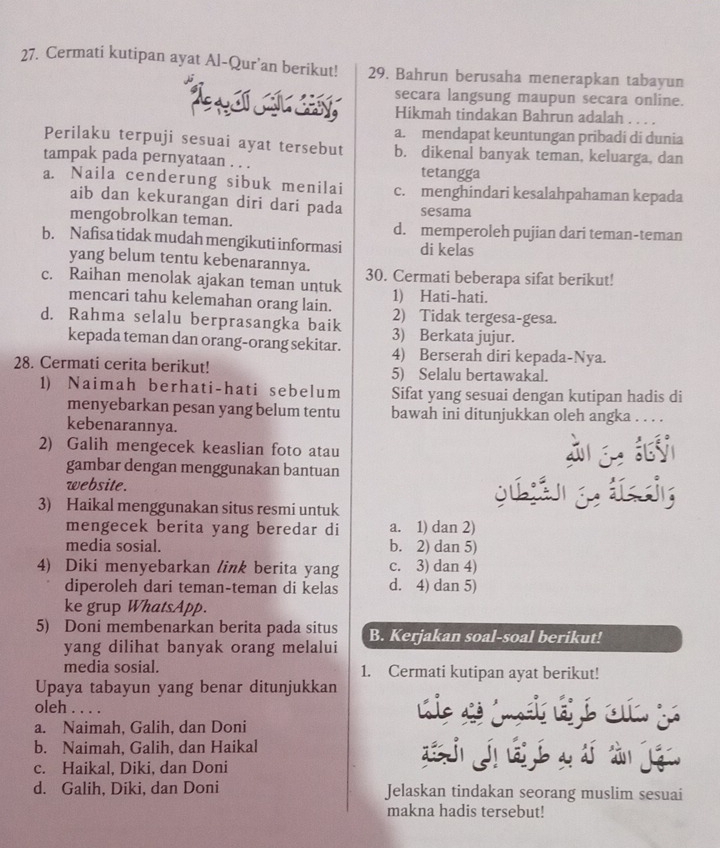 27. Cermati kutipan ayat Al-Qur'an berikut!
وَلَا تَقْفُ مَا لَيْسَ لَكَ بِهٖ عِلْمٌ ۗ
Perilaku terpuji sesuai ayat tersebut
tampak pada pernyataan . . .
a. Naila cenderung sibuk menilai
aib dan kekurangan diri dari pada
mengobrolkan teman.
b. Nafisa tidak mudah mengikuti informasi
yang belum tentu kebenarannya.
c. Raihan menolak ajakan teman untuk
mencari tahu kelemahan orang lain.
d. Rahma selalu berprasangka baik
kepada teman dan orang-orang sekitar.
28. Cermati cerita berikut!
1) Naimah berhati-hati sebelum
menyebarkan pesan yang belum tentu
kebenarannya.
2) Galih mengecek keaslian foto atau
gambar dengan menggunakan bantuan
website.
3) Haikal menggunakan situs resmi untuk
mengecek berita yang beredar di
media sosial.
4) Diki menyebarkan link berita yang
diperoleh dari teman-teman di kelas
ke grup WhatsApp.
5) Doni membenarkan berita pada situs
yang dilihat banyak orang melalui
media sosial.
Upaya tabayun yang benar ditunjukkan
oleh . . . .
a. Naimah, Galih, dan Doni
b. Naimah, Galih, dan Haikal
c. Haikal, Diki, dan Doni
d. Galih, Diki, dan Doni
29. Bahrun berusaha menerapkan tabayun
secara langsung maupun secara online.
Hikmah tindakan Bahrun adalah . . . .
a. mendapat keuntungan pribadi di dunia
b. dikenal banyak teman, keluarga, dan
tetangga
c. menghindari kesalahpahaman kepada
sesama
d. memperoleh pujian dari teman-teman
di kelas
30. Cermati beberapa sifat berikut!
1) Hati-hati.
2) Tidak tergesa-gesa.
3) Berkata jujur.
4) Berserah diri kepada-Nya.
5) Selalu bertawakal.
Sifat yang sesuai dengan kutipan hadis di
bawah ini ditunjukkan oleh angka . . . .
الْأَنَاةُ مِنَ اللهِ
وَالْعَجَلَةُ مِنَ الشَّيْطَانِ
a. 1) dan 2)
b. 2) dan 5)
c. 3) dan 4)
d. 4) dan 5)
B. Kerjakan soal-soal berikut!
1. Cermati kutipan ayat berikut!
مَنْ سَلَكَ طَرِيْقًا يَلْتَمِسُ فِيْهِ عِلْمًا
سَهَّلَ اللهُ لَهُ بِهِ طَرِيْقًا إِلَى الْجَنَّةِ
Jelaskan tindakan seorang muslim sesuai
makna hadis tersebut!